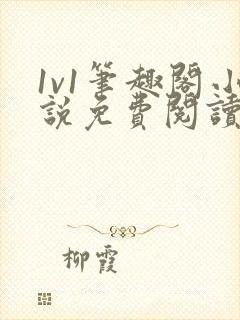 1v1筆趣閣.小
說免費閱讀
柳霞